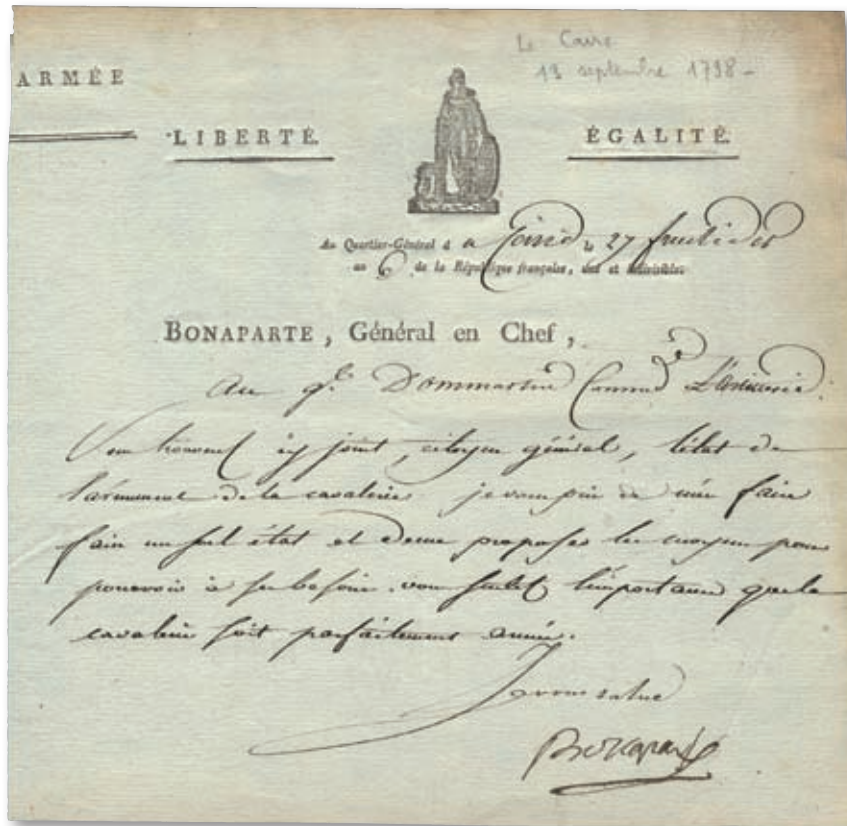 Le Caire
13 septembre 1798 -
ARMÉE
LIBERTÉ.
ÉGALITÉ.
Au Quartier-Général à au Caire le 27 fructidor
an 6 de la République française, une et indivisible.
BONAPARTE, Général en Chef,
Au gal Dommartin Command L'artillerie.
Vous trouverez cy joint, citoyen général, l'état de
l'armement de la cavalerie. je vous prie de m'en faire
faire un seul état et de me proposer les moyens pour
pourvoir à ses besoins. vous sentez l'importance que la
cavalerie soit parfaitement armée.
Je vous salue
Bonaparte